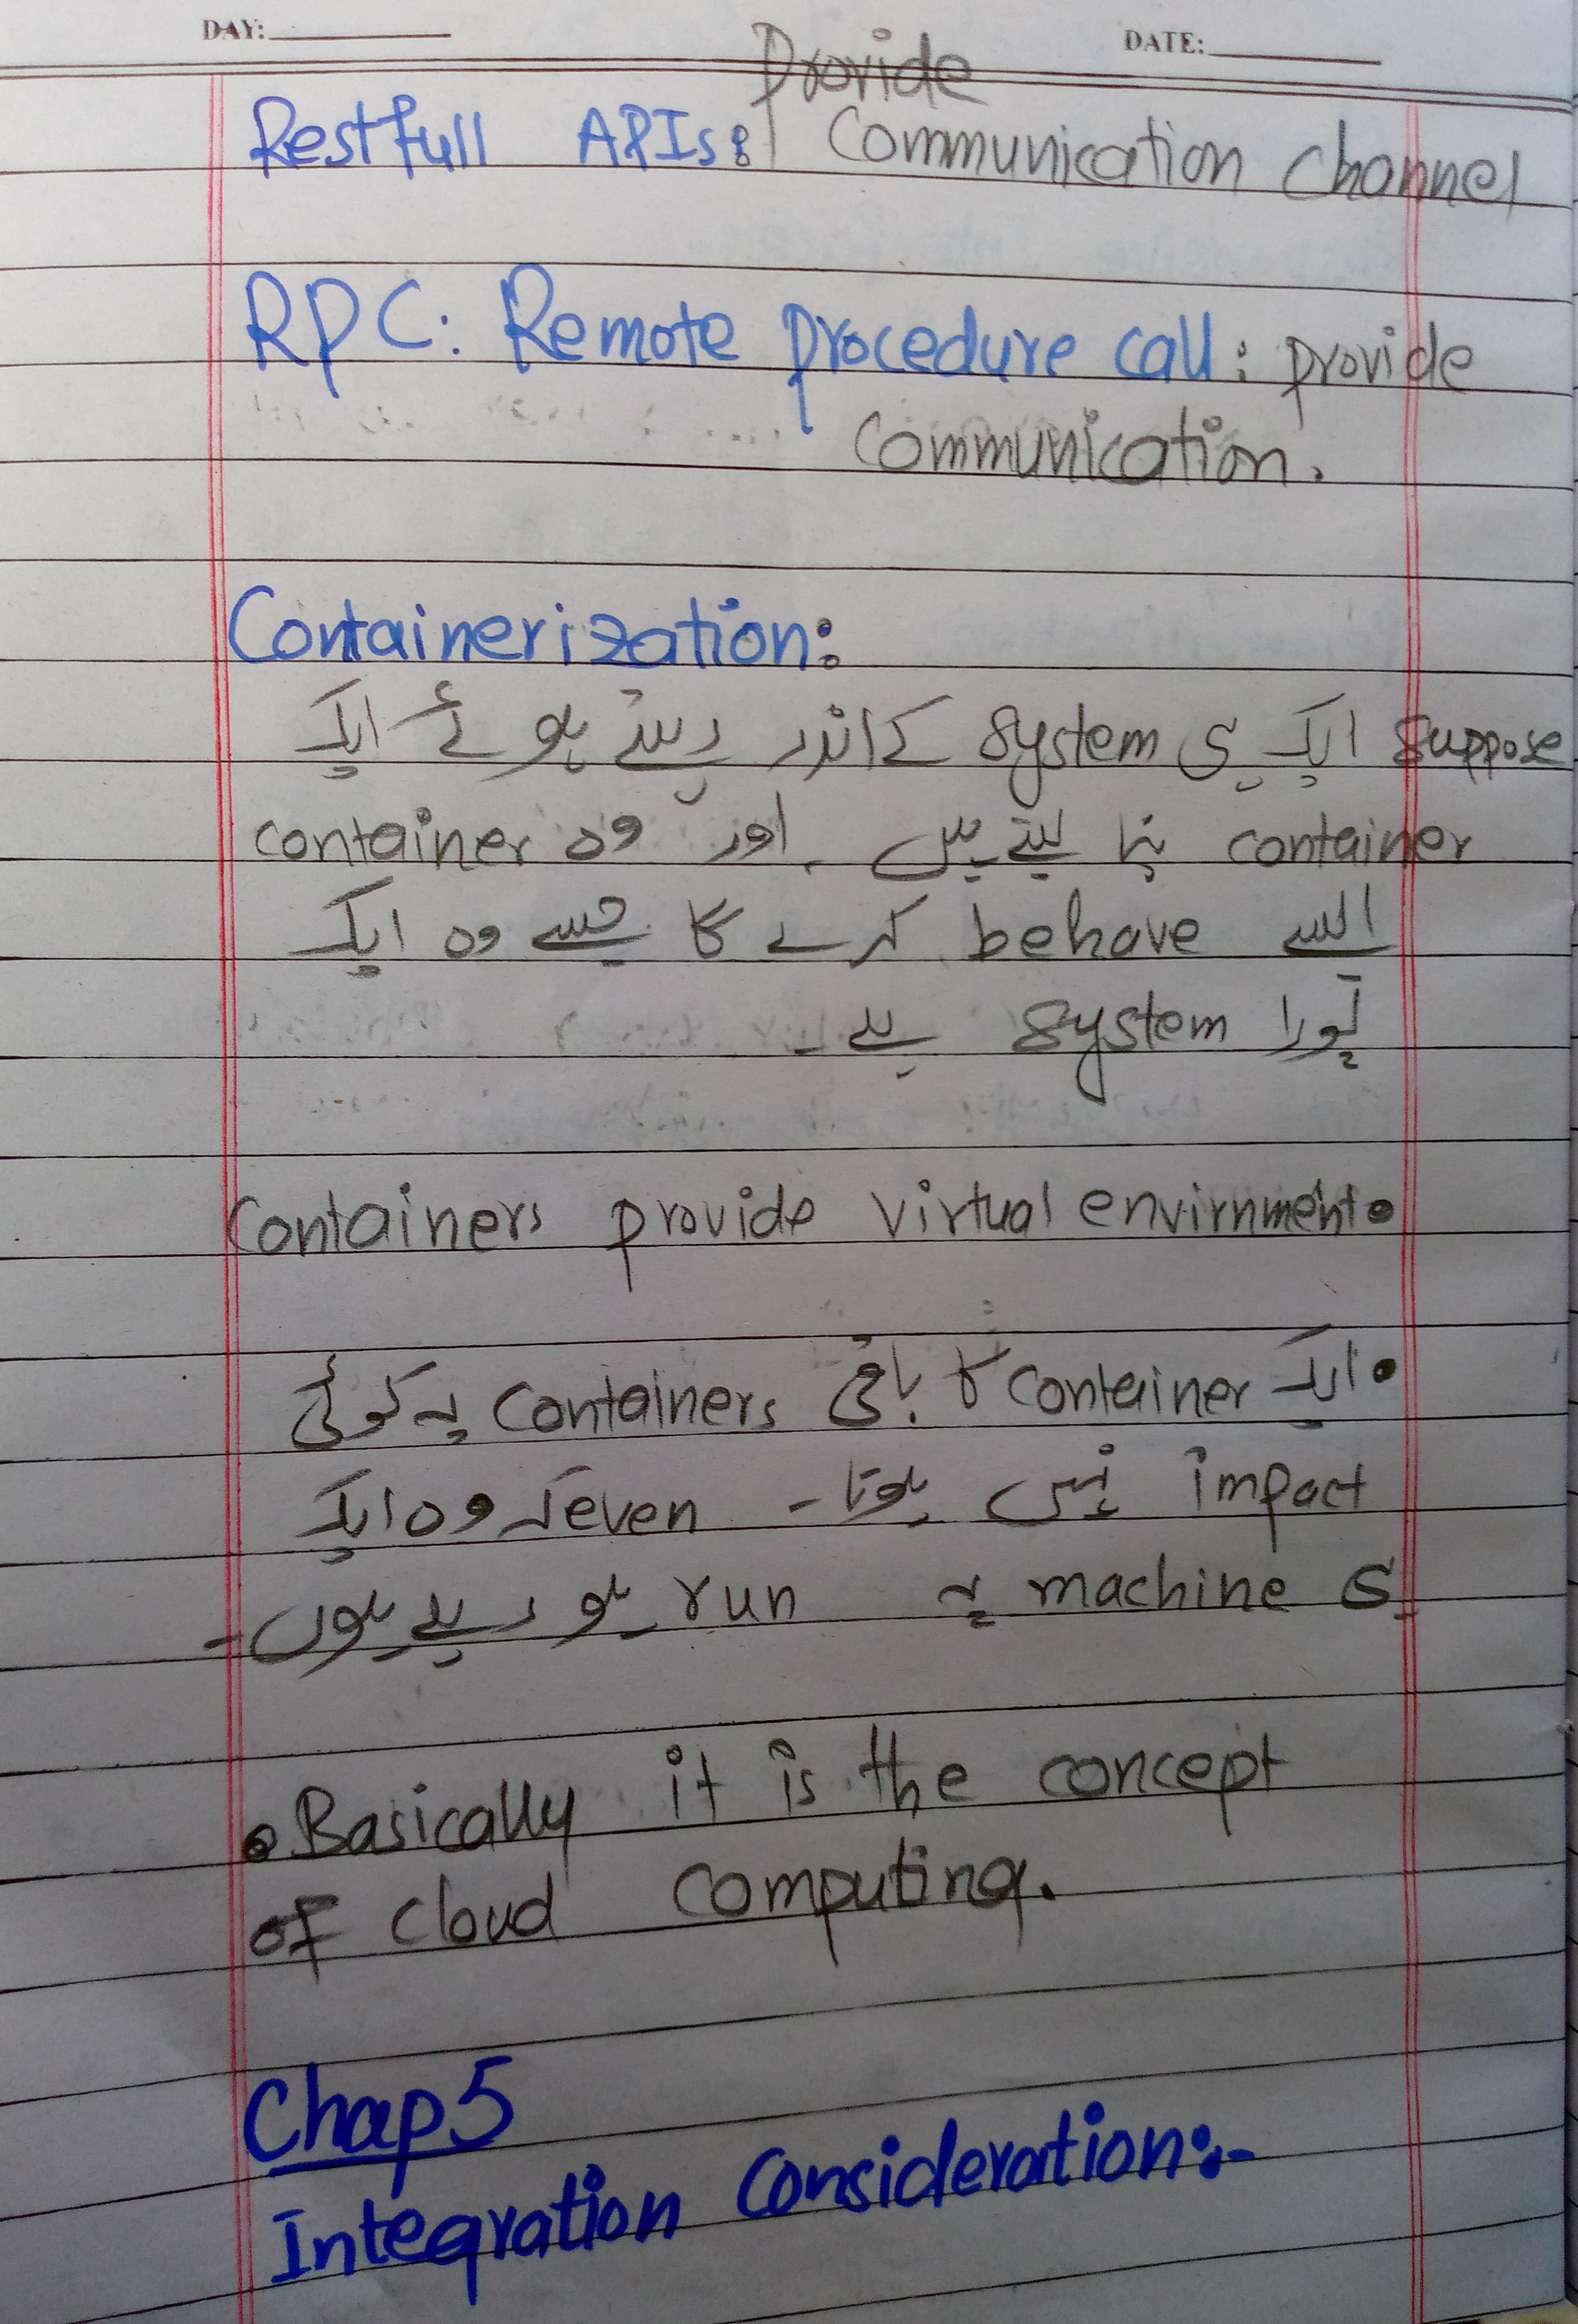 DAY:
DATE:
Provide
Restfull APIs: Communication Channel
RPC: Remote procedure call: provide
Communication.
Containerization:
suppose ایک ہی system کے اندر رہتے ہوئے ایک
container بنا لیتے ہیں۔ اور وہ container
ایسے behave کرے گا جیسے وہ ایک
پورا system ہے۔
Containers provide virtual envirnment.
• ایک container کا باقی containers پہ کوئی
impact نہیں ہوتا۔ even کہ وہ ایک
ہی machine پہ run ہو رہے ہوں۔
• Basically it is the concept
of cloud computing.
Chap5
Integration Consideration:-